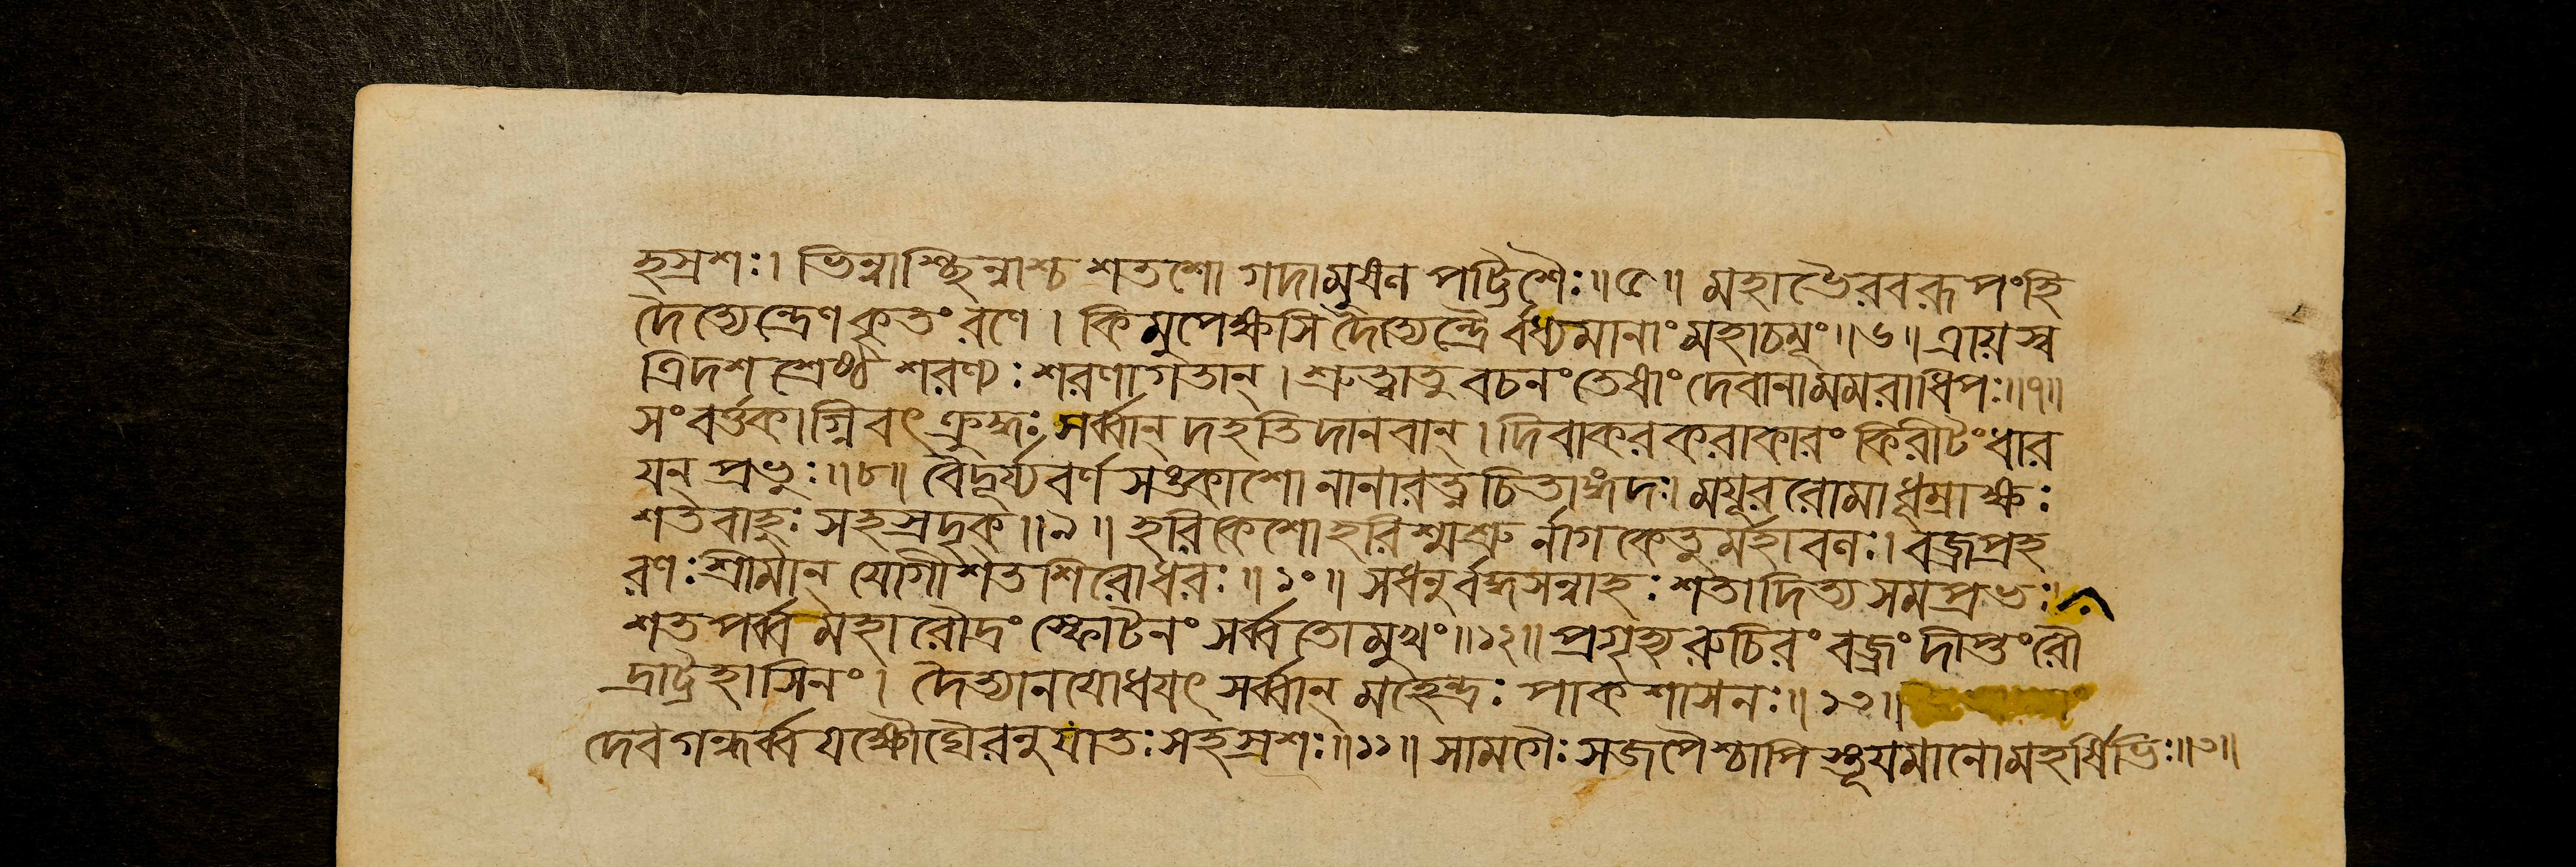 হস্রশঃ। ভিন্নাশ্ছিন্নাশ্চ শতশো গদামুষল পট্টিশৈঃ॥৫॥ মহাভৈরবরূপংহি
দৈত্যেন্দ্রেণ কৃতং রণে। কিমুপেক্ষসি দৈত্যেন্দ্রৈর্বধ্যমানাং মহাচমূং॥৬॥ ত্রায়স্ব
ত্রিদশশ্রেষ্ঠ শরণ্যঃ শরণাগতান্। শ্রুত্বাতু বচনং তেষাং দেবানামমরাধিপঃ॥৭॥
সংবর্ত্তকাগ্নিবৎ ক্রুদ্ধঃ সর্ব্বান্ দহতি দানবান্। দিবাকরকরাকারং কিরীটং ধার
যন্ প্রভুঃ॥৮॥ বৈদূর্য্যবর্ণসঙ্কাশো নানারত্নচিতাঙ্গদঃ। ময়ূররোমা ধূম্রাক্ষঃ
শতবাহুঃ সহস্রদৃক্॥৯॥ হরিকেশো হরিশ্মশ্রু র্নাগকেতুর্মহাবলঃ। বজ্রপ্রহ
রণঃ শ্রীমান্ যোগী শতশিরোধরঃ॥১০॥ সধনুর্বদ্ধসন্নাহঃ শতাদিত্যসমপ্রভঃ।
শতপর্ব্ব মহারৌদ্রং স্ফোটনং সর্ব্বতোমুখং॥১২॥ প্রগৃহ্য রুচিরং বজ্রং দীপ্তং রৌ
দ্রাট্টহাসিনং। দৈত্যানযোধযৎ সর্ব্বান্ মহেন্দ্রঃ পাকশাসনঃ॥১৩॥
দেবগন্ধর্ব্ব যক্ষৌঘৈরনুযাতঃ সহস্রশঃ॥১১॥ সামগৈঃ সজপৈশ্চাপি স্তূযমানো মহর্ষিভিঃ॥৩॥